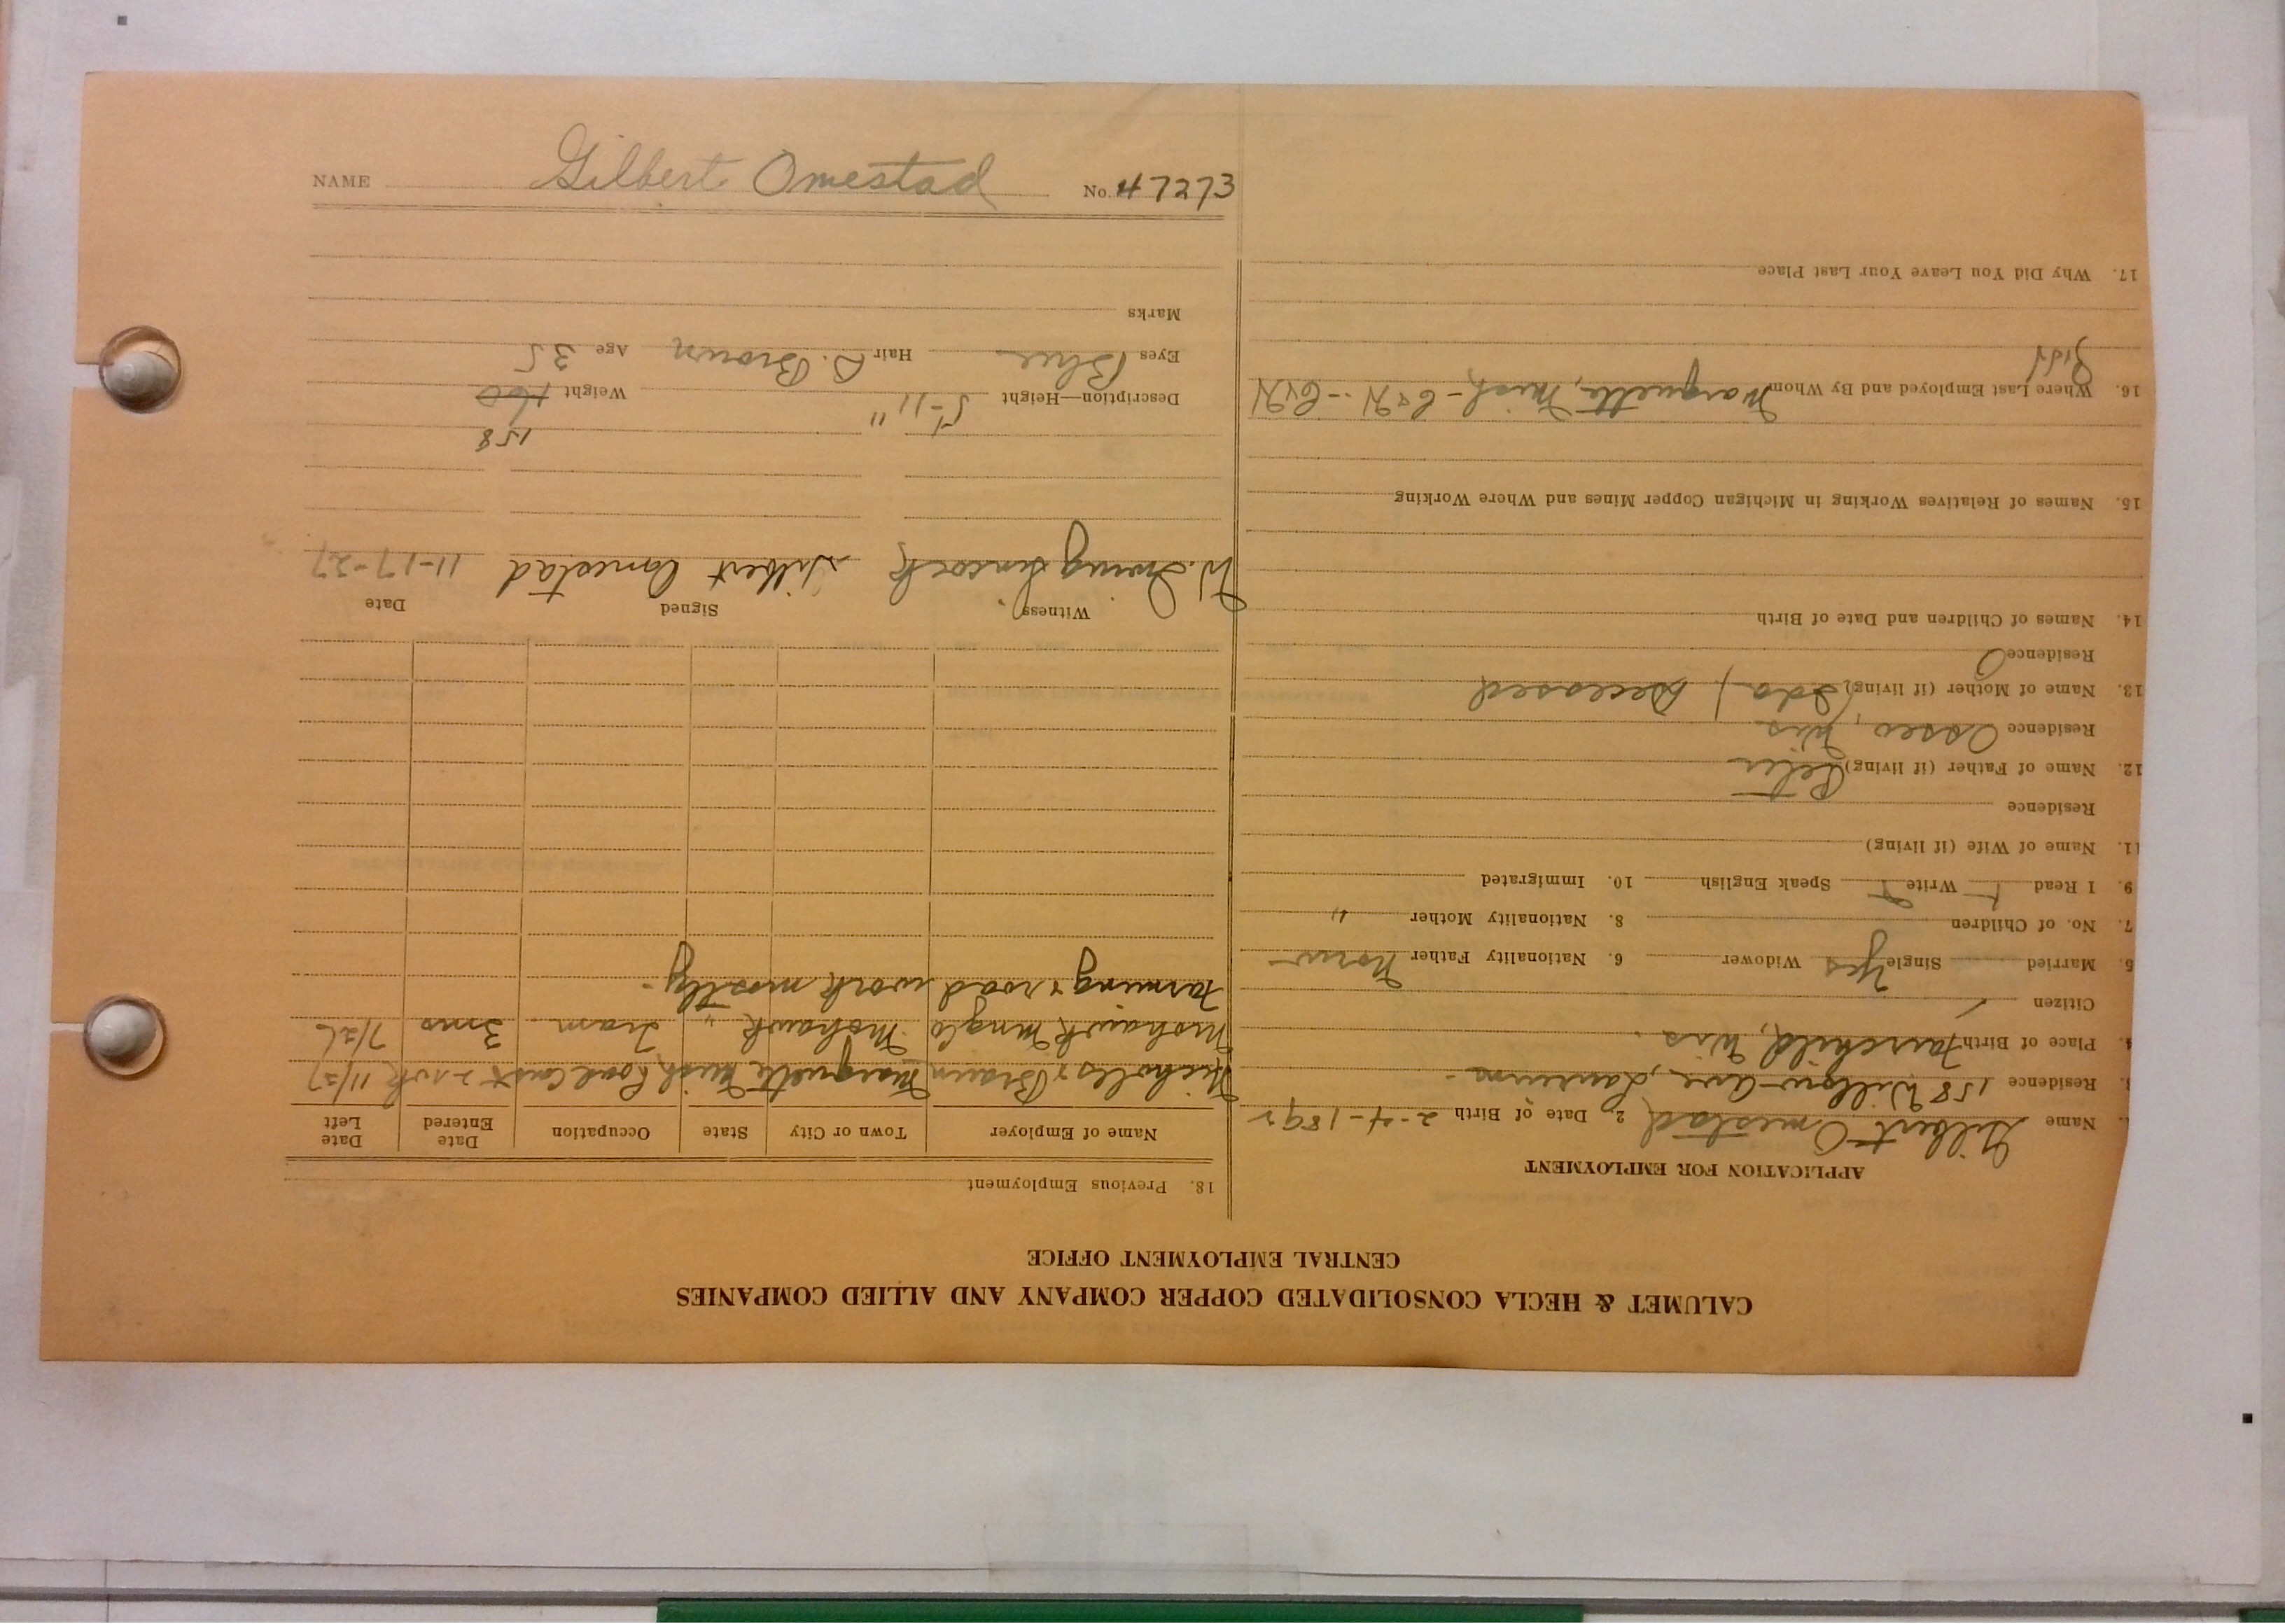 NAME Gilbert Omestad No. 47273
CALUMET & HECLA CONSOLIDATED COPPER COMPANY AND ALLIED COMPANIES
CENTRAL EMPLOYMENT OFFICE
APPLICATION FOR EMPLOYMENT
Name Gilbert Omestad 2. Date of Birth 2-4-1892
Residence 158 Willow Ave, Laurium
4. Place of Birth Fairchild, Wis.
Citizen
5. Married Single Yes Widower 6. Nationality Father Norw
7. No. of Children 8. Nationality Mother "
9. I Read Write Speak English 10. Immigrated
11. Name of Wife (if living)
Residence
12. Name of Father (if living) Peter
Residence Osseo, Wis
13. Name of Mother (if living) (Ida) Deceased
Residence
14. Names of Children and Date of Birth
15. Names of Relatives Working in Michigan Copper Mines and Where Working
16. Where Last Employed and By Whom Marquette, Mich - C&H - C&H
17. Why Did You Leave Your Last Place
18. Previous Employment
Name of Employer Town or City State Occupation Date Entered Date Left
Nicholls & Brown Marquette Mich Road Const 11/27
Mohawk Mng Co Mohawk " Tram 3 mos 7/26
Farming & road work mostly.
Witness Signed Date
W. Irving Sincock Gilbert Omestad 11-17-27
158
Description—Height 5'-11" Weight 160
Eyes Blue Hair D. Brown Age 35
Marks